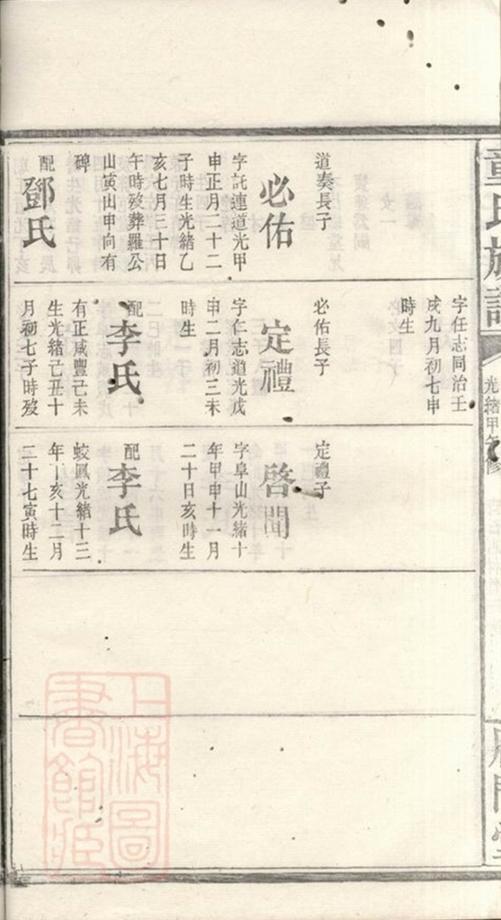 道奏長子
必佑
字託連道光甲
申正月二十二
子時生光緒乙
亥七月三十日
午時歿葬羅公
山寅山申向有
碑
配
鄧氏
字任志同治壬
戌九月初七申
時生
必佑長子
定禮
字仁志道光戊
申二月初三未
時生
配
李氏
有正咸豐己未
生光緒己丑十
月初七子時歿
定禮子
啓聞
字阜山光緒十
年甲申十一月
二十日亥時生
配
李氏
蛟鳳光緒十三
年亥十二月
二十七寅時生
童氏族譜
光緒甲午修
上海圖
書館藏